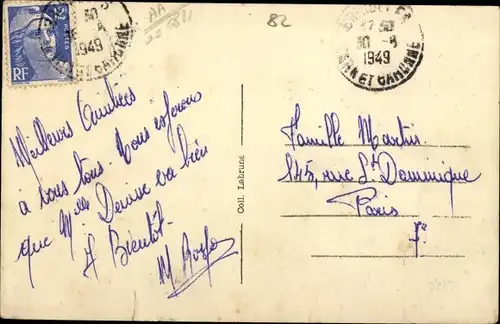 POSTES
RF
30 -8
1949
TARN ET GARONNE
AA
82
30 -8
1949
TARN ET GARONNE
Meilleures Amitiés
à tous tous. Nous espérons
que Mlle Denise va bien
A Bientôt
M.
Coll. Labruns
Famille Martin
145, rue St Dominique
Paris
7e